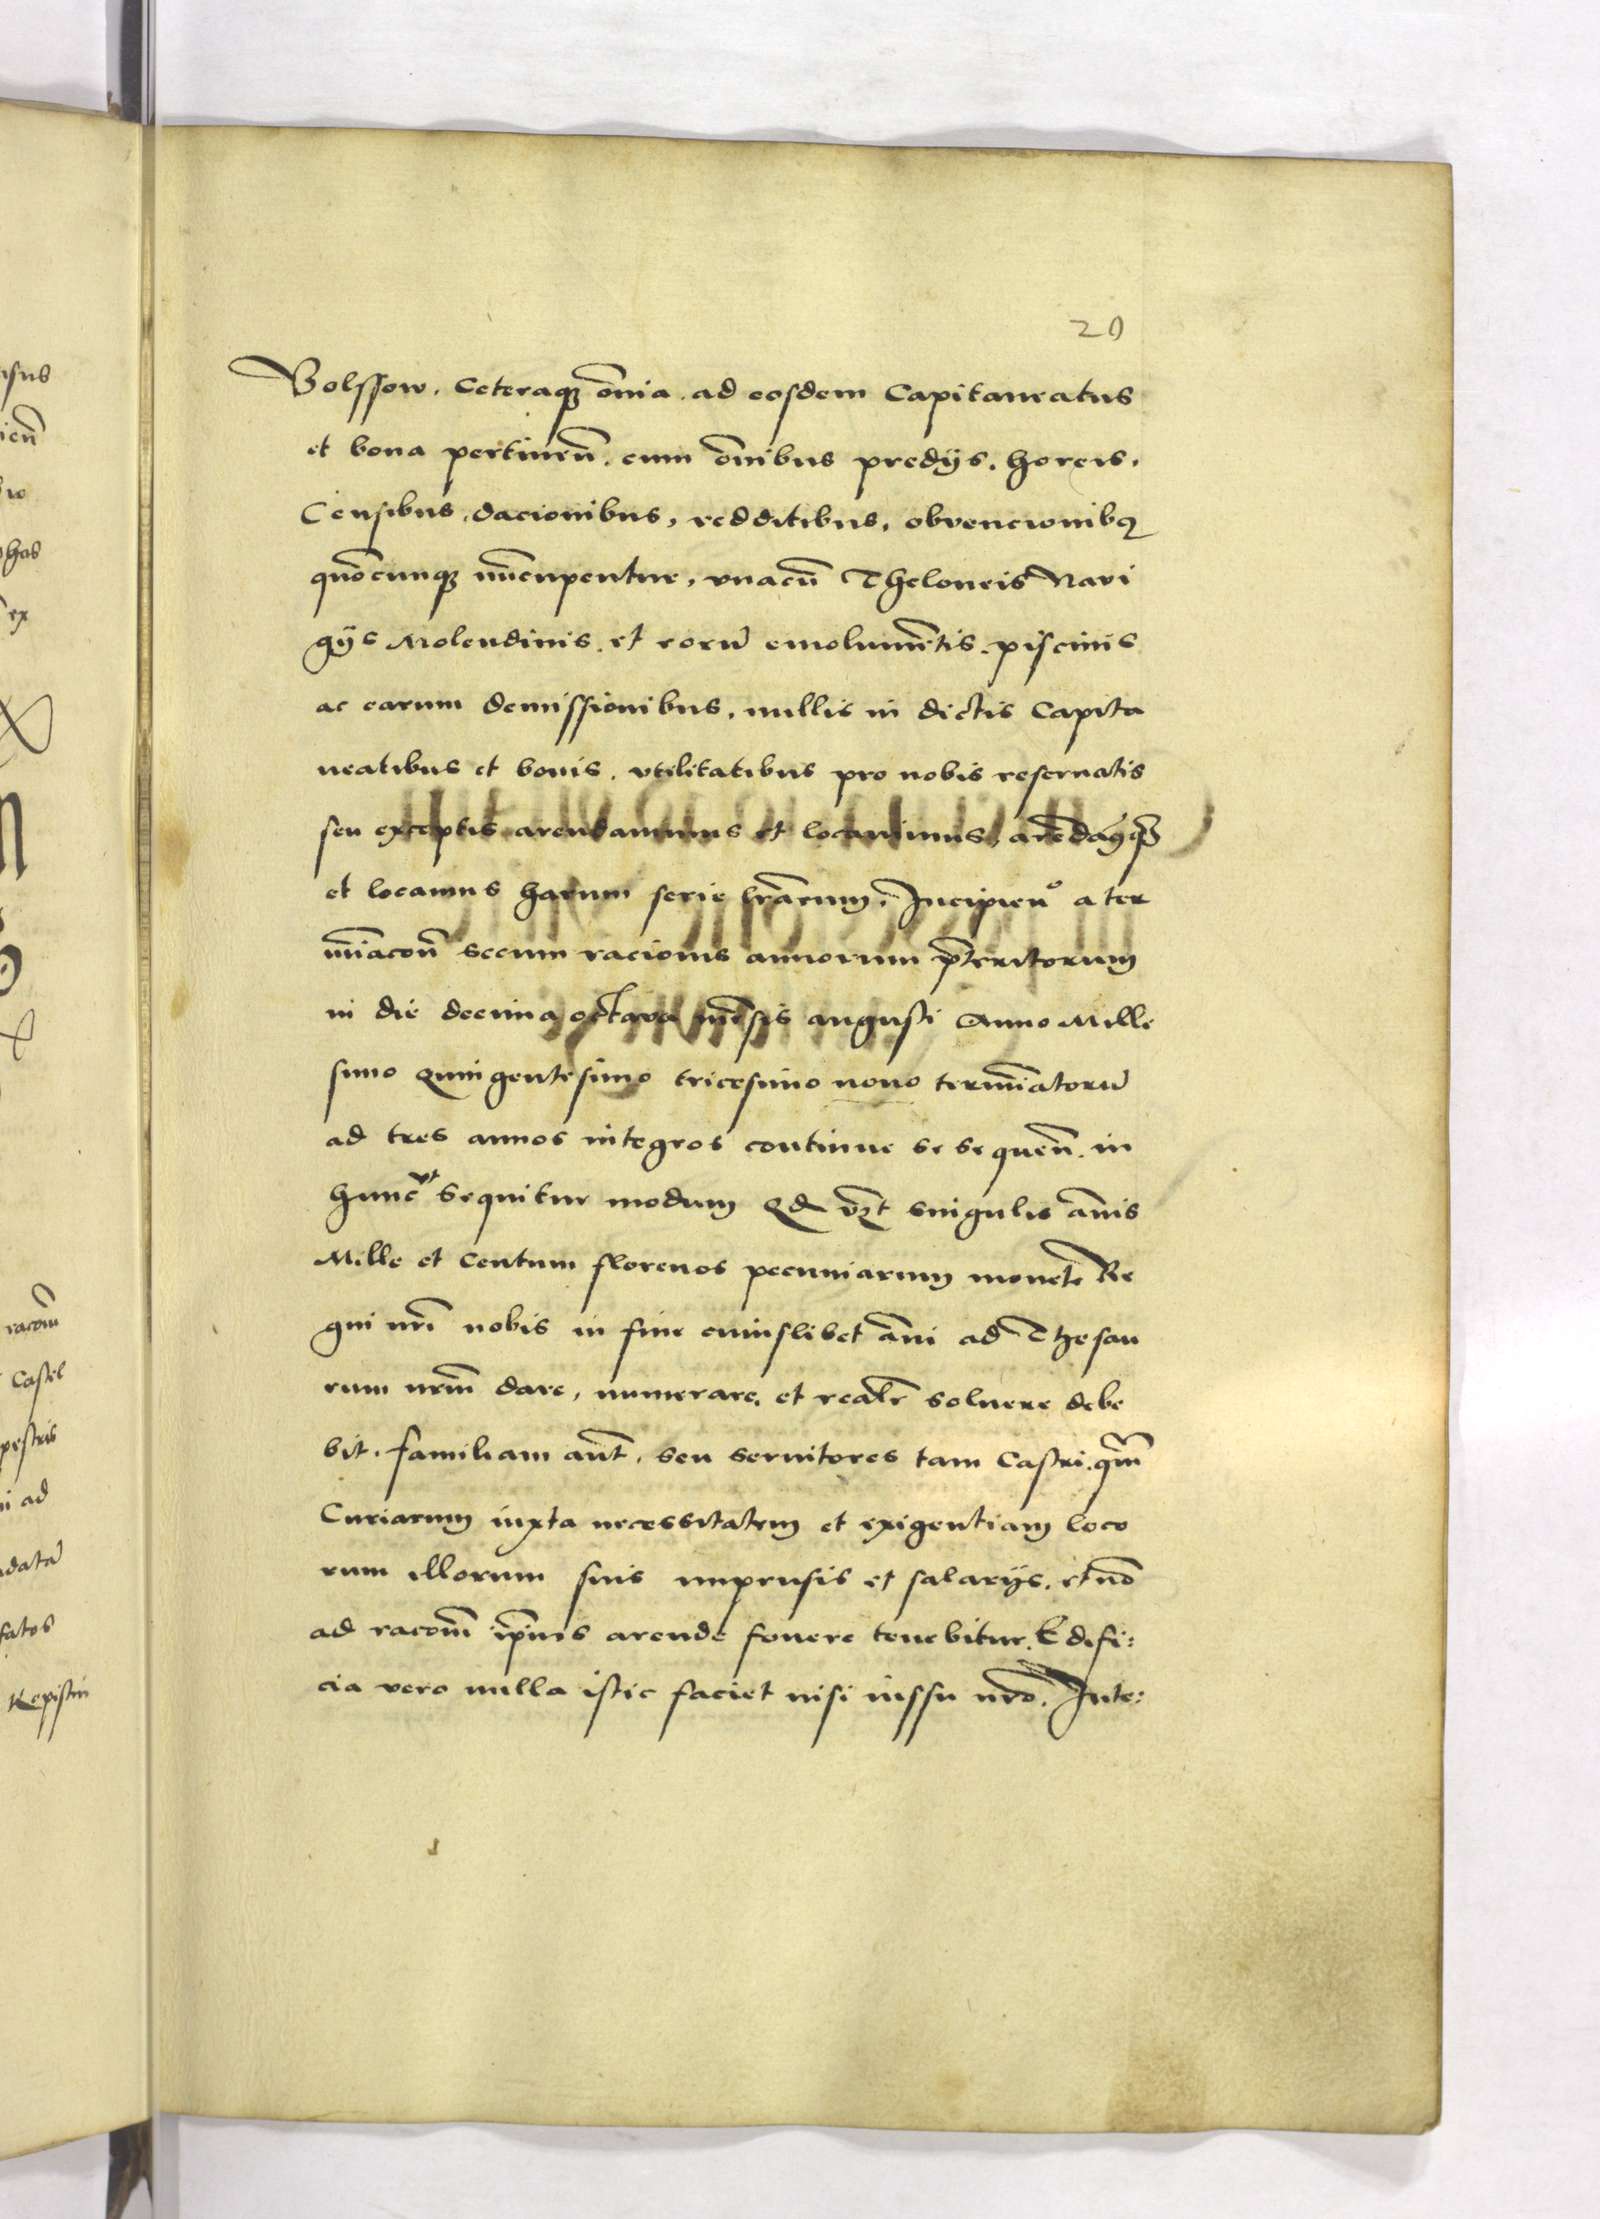 20
Bolssow. Ceteraq3 om̄ia ad eosdem Capitaneatus
et bona pertineñ. cum om̄ibus predÿs. horeis.
Censibus, dacionibus, redditibus, obvencionibꝫ
quōcunq3 nūcupentur, vnacū Theloneis Navi
gÿs Molendinis. et eorū emolumētis. piscinis
ac earum demissionibus, nullis in dictis Capita
neatibus et bonis. vtilitatibus pro nobis reseruatis
seu exceptis arendamus et locauimus,
et locamus harum serie lr̄arum. Incipieñ a ter
mīacoñ secum racionis annorum p̄teritorum
in die decima octava mēsis augusti Anno Mille
simo Quingentesimo tricesimo nono termīatorū
ad tres annos integros continue se sequeñ. in
hunc vt sequitur modum Qd vꝫt singulis añis
Mille et Centum florenos pecuniarum monete Re
gni nr̄i nobis in fine cuiuslibet añi ad Thesau
rum nr̄m dare, numerare, et realr̄ soluere debe
bit. familiam aūt. seu seruitores tam Castri. qm̄
Curiarum iuxta necessitatem et exigentiam loco
rum illorum suis impensis et salarÿs. et nō
ad racōm ip̄ius arende fouere tenebitur. Edifi:
cia vero nulla istic faciet nisi iussu nr̄o. Inte:
isus
has
ex
racōm
Castel
pestris
i ad
data
fatos